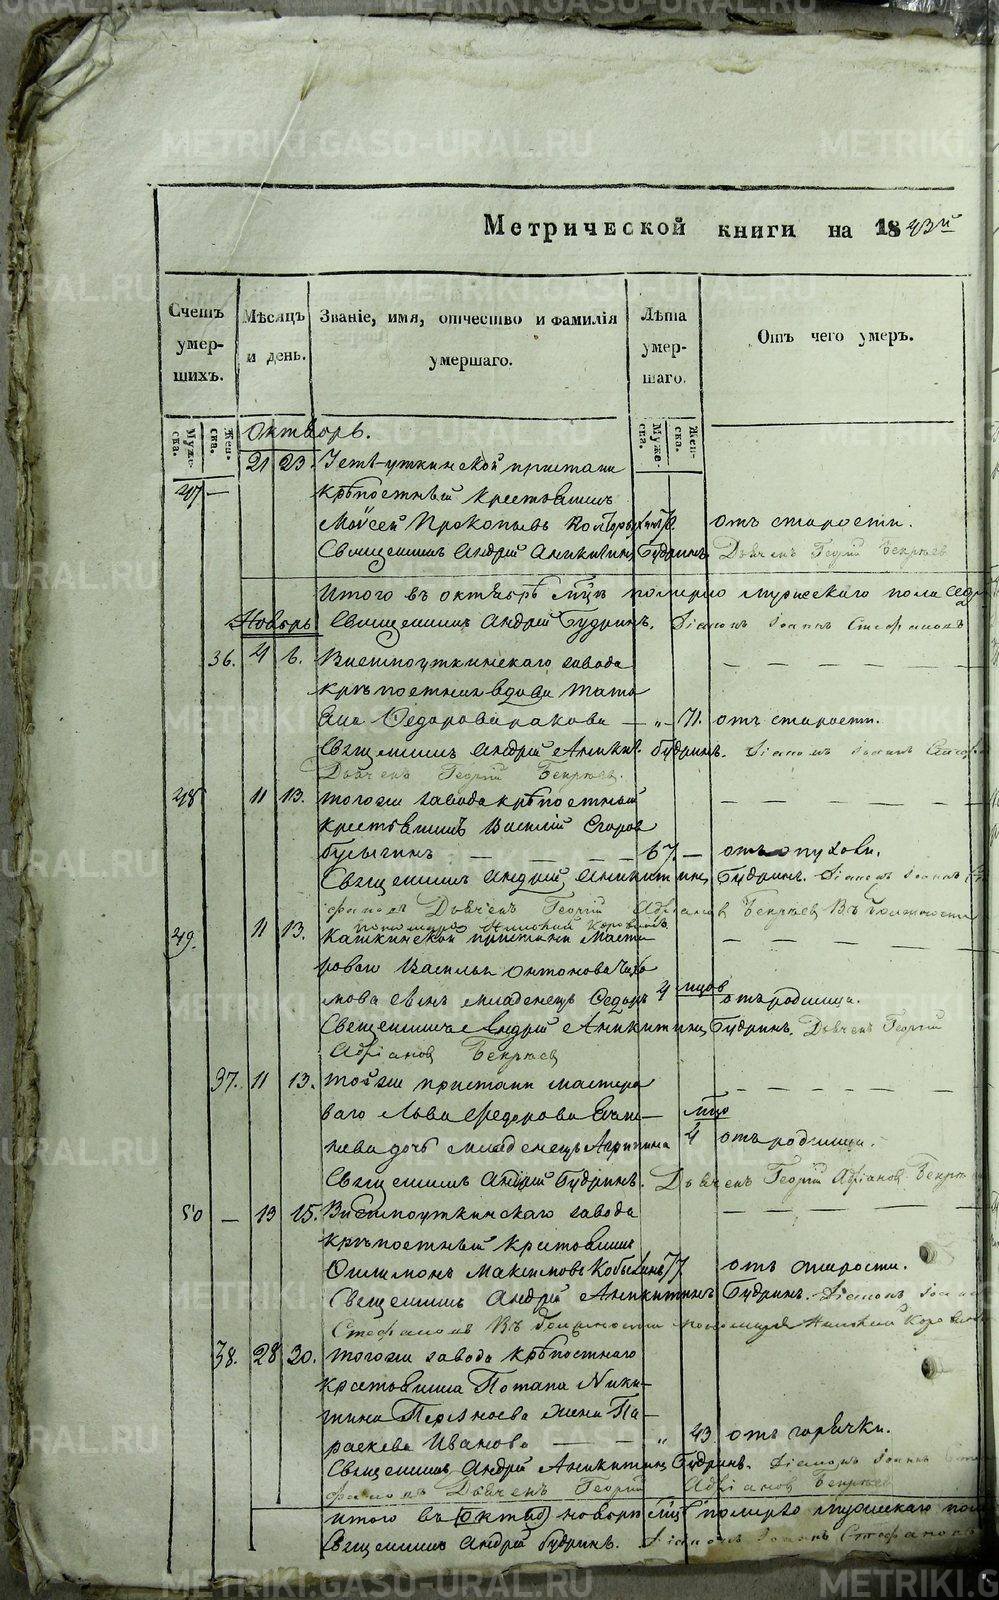 Метрической книги на 1843й
Счетъ умер-шихъ.
Мѣсяцъ и день.
Званіе, имя, отчество и фамилія умершаго.
Лѣта умер-шаго.
Отъ чего умеръ.
Муже-ска. Жен-ска.
Муже-ска. Жен-ска.
Октябрь.
21 23. Устъ-уткинской пристани
47 — крѣпостный крестьянинъ
Моѵсей Прокопьевъ отъ старости.
Священникъ Андрей Аникитинъ Будринъ. Дьячекъ Георгій Бекряев
Итого въ октябрѣ мцѣ померло мужескаго пола
Ноябрь Священникъ Андрей Будринъ. Діаконъ Іоаннъ Стефановъ
36. 4 6. Висимоуткинскаго завода
крѣпостная вдова Татья
на Ѳедорова — „ — 71. отъ старости.
Священникъ Андрей Аникит. Будринъ. Діаконъ Іоаннъ
Дьячекъ Георгій Бекряев.
48 11 13. тогоже завода крѣпостный
крестьянинъ Василій Егоров
Бусыгинъ — — — — 67. — отъ опухоли.
Священникъ Андрей Аникитинъ Будринъ. Діаконъ Іоаннъ Сте
фановъ Дьячекъ Георгій Адріанов Бекряев Въ должности
пономаря Николай Коровинъ
49. 11 13. Кашкинской пристани масте
роваго Василья Антонова
сынъ младенецъ Ѳедоръ 4 мцов отъ родимца.
Священникъ Андрей Аникитинъ Будринъ. Дьячекъ Георгій
Адріанов Бекряев
37. 11 13. тойже пристани мастеро
ваго Льва Ѳедорова мцо
дочь младенецъ Агрипина 4 отъ родимца.
Священникъ Андрей Будринъ. Дьячекъ Георгій Адріанов Бекряев
50 — 13 15. Висимоуткинскаго завода
крѣпостный крестьянинъ
Филимонъ Максимовъ Кобылинъ 77 отъ старости.
Священникъ Андрей Аникитинъ Будринъ. Діаконъ Іоаннъ
Стефановъ Въ должности пономаря Николай Коровинъ
38. 28 30. тогоже завода крѣпостнаго
крестьянина Потапа Ники-
тина жена Па-
раскева Иванова — — „ 43 отъ горячки.
Священникъ Андрей Аникитинъ Будринъ. Діаконъ Іоаннъ Сте
фановъ Дьячекъ Георгій Адріанов Бекряев
итого въ (октяб) ноябрѣ мцѣ померло мужескаго пола
Священникъ Андрей Будринъ. Діаконъ Іоаннъ Стефановъ
METRIKI.GASO-URAL.RU